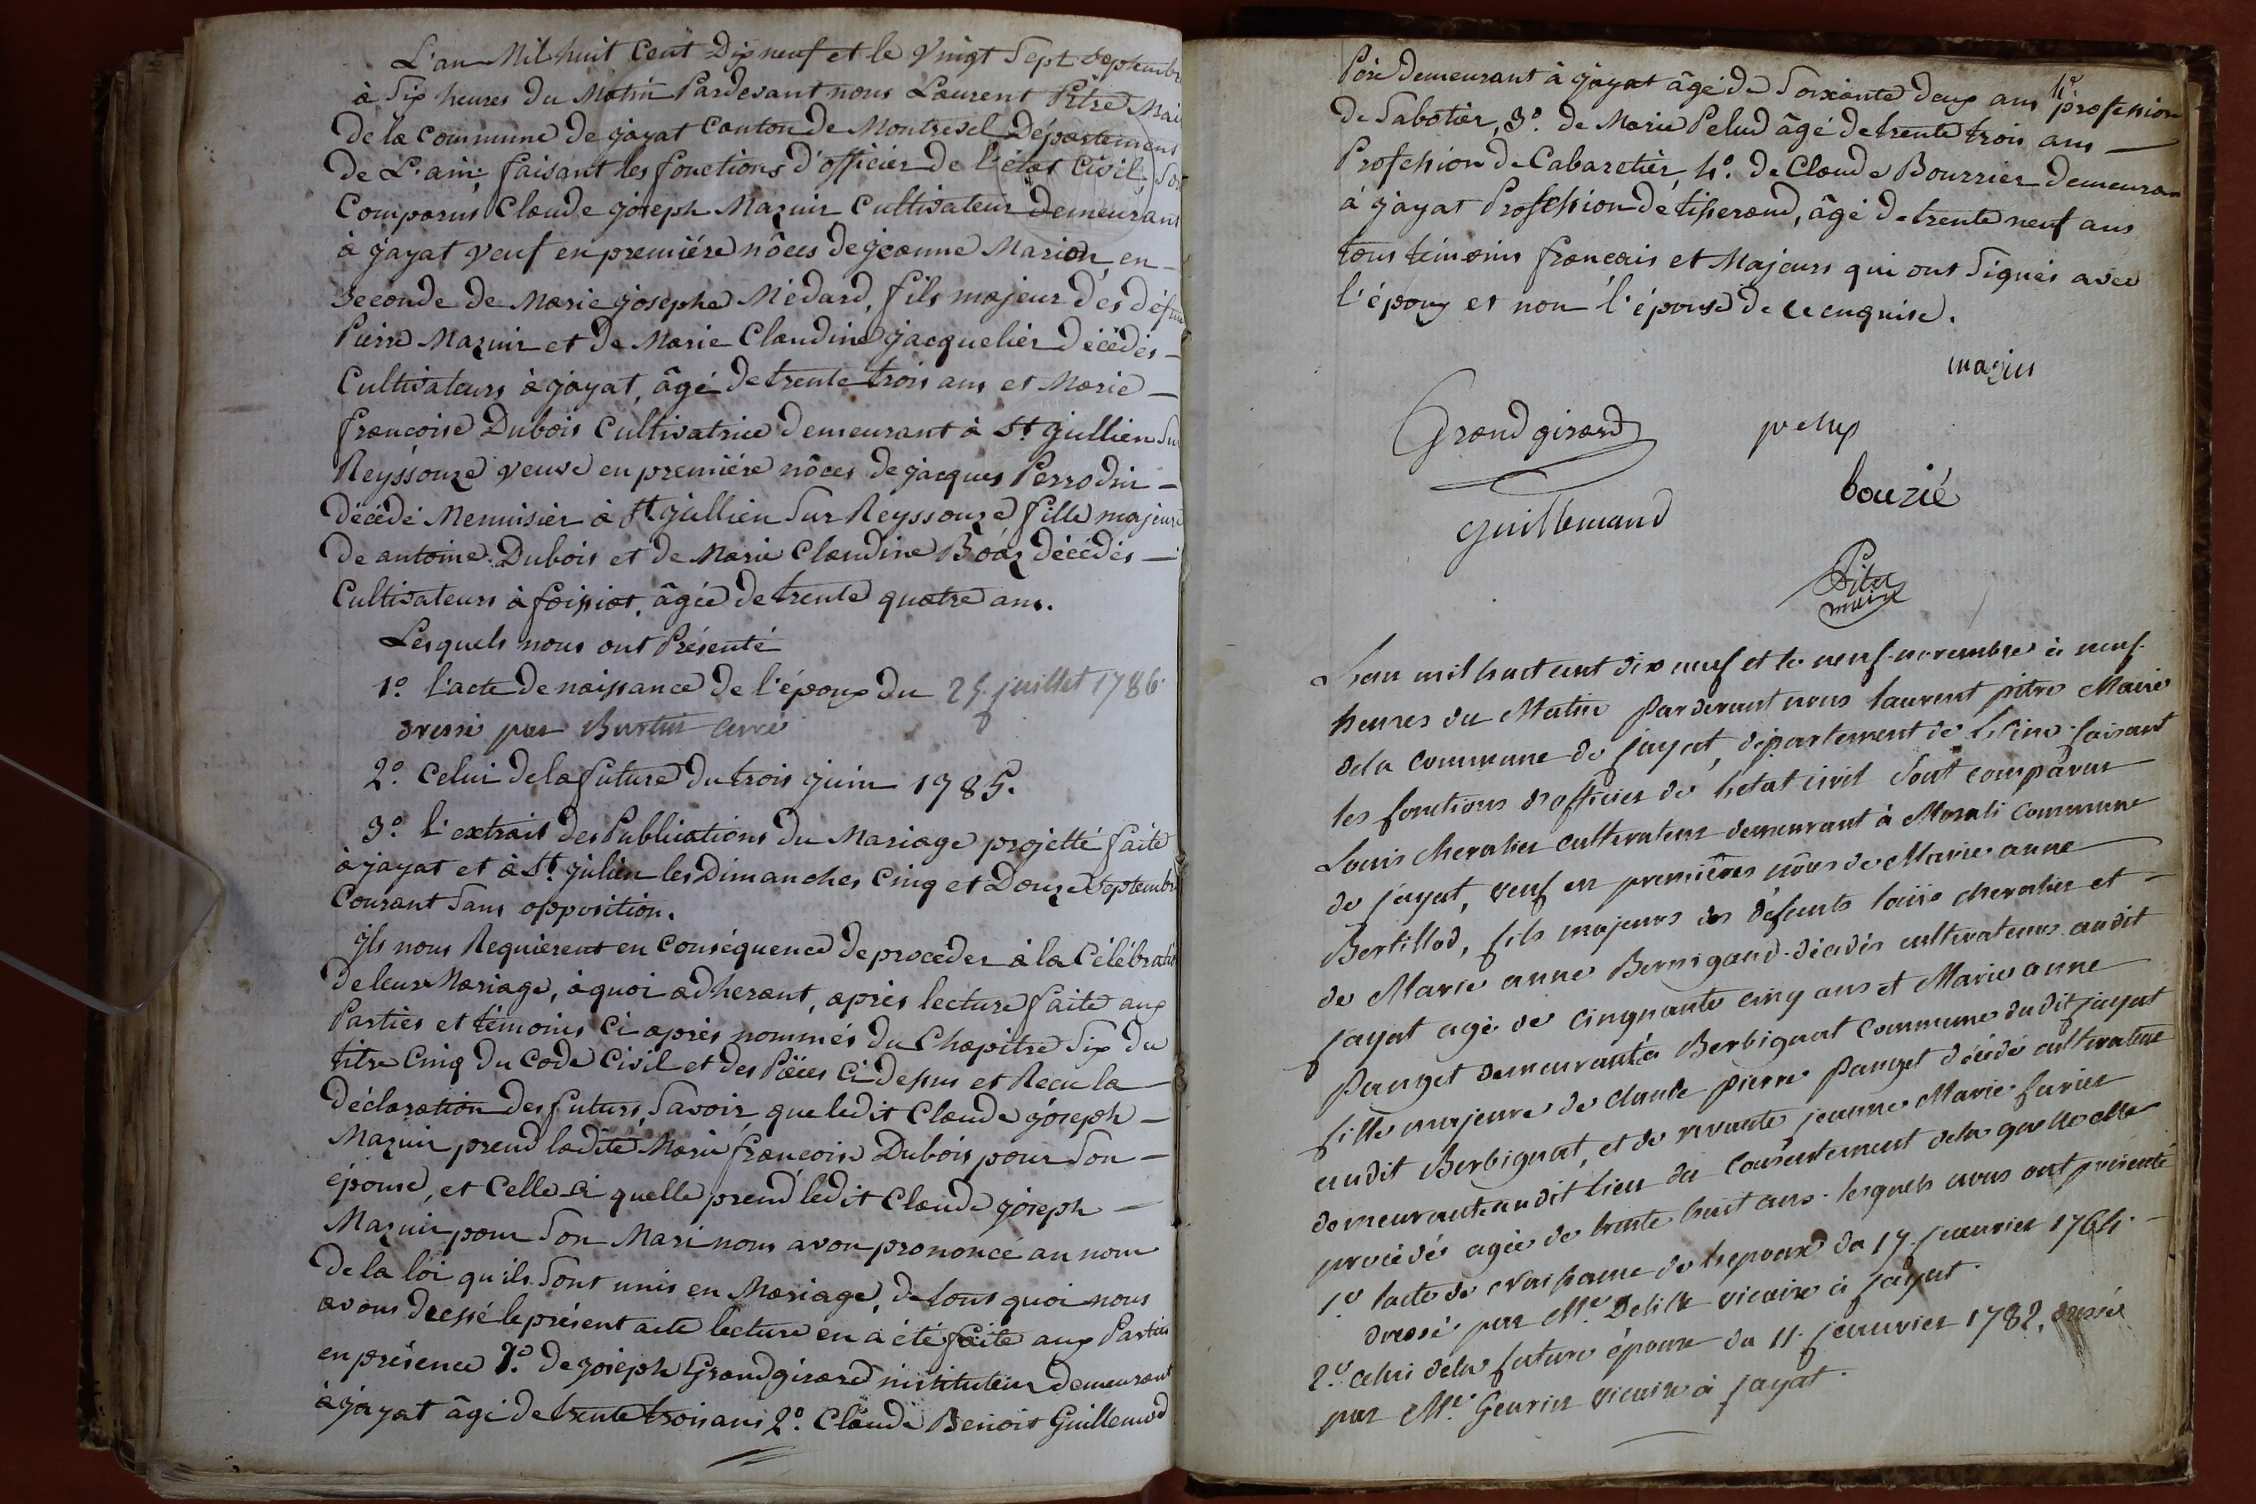 L'an Mil huit Cent Dix neuf et le Vingt Sept Septembre
à Six heures du Matin Pardevant nous Laurent Pitre Mai
de la Commune de jayat Canton de Montrevel Département
de L'ain, faisant les fonctions d'officier de l'état Civil, Son
Comparus Claude joseph Mazuir Cultivateur Demeurant
à jayat Veuf en premiére nôces de jeanne Marion, en-
seconde de Marie josephe Médard, fils majeur des défun
Pierre Mazuir et de Marie Claudine jacquelier décédés -
Cultivateurs à jayat, âgé de trente trois ans et Marie -
françoise Dubois Cultivatrice demeurant à St jullien Su
Reyssouze veuve en premiére nôces de jacques Perrodin -
décédé Menuisier à St jullien Sur Reyssouze fille majeure
de antoine Dubois et de Marie Claudine Boáz décédés -
Cultivateurs à foissiat, âgée de trente quatre ans.
Lesquels nous ont Présenté
1º l'acte de naissance de l'époux du 25 juillet 1786
dressé par Burtin curé
2º Celui de la future du trois juin 1785.
3º l'extrait des Publications du Mariage projetté faite
à jayat et à St julien les Dimanches Cinq et Douze Septembre
Courant Sans opposition.
jls nous Requièrent en Conséquence de procéder à la Célébratio
de leur Mariage, à quoi adherant, après lecture faite aux
Parties et témoins Ci après nommés du Chapitre Six du
titre Cinq du Code Civil et des Pièces Ci dessus et Reçu la
déclaration des futurs, Savoir que ledit Claude joseph -
Mazuir prend ladite Marie françoise Dubois pour Son -
épouse, et Celle ci quelle prend ledit Claude joseph -
Mazuir pour Son Mari nous avon prononcé au nom
de la loi qu'ils Sont unis en Mariage, de tout quoi nous
avons dressé le présent acte lecture en a été faite aux Parties
en présence 1º. de joseph Grandgirard instituteur demeurant
à jayat âgé de trente trois ans 2º. Claude Benoit Guillemod
Pére demeurant à jayat âgé de Soixante deux ans profession
de Sabotier, 3º. de Marie Pelud âgé de trente trois ans -
Profession de Cabaretier, 4º. de Claude Bourrier demeuran
à jayat Profession de tisserand, âgé de trente neuf ans
tous témoins français et Majeurs qui ont Signés avec
l'époux et non l'épouse de ce enquise.
mazuir
Grandgirard pelux
bouzié
guillemaud
Pitre
maire
L'an mil huit cent dix neuf et le neuf novembre à neuf
heures du Matin pardevant nous laurent pitre Maire
dela commune de jayat, département de L'ain faisant
les fonctions d'officier de l'etat civil sont comparus
Louis chevalier cultivateur demeurant à Morali commune
de jayat, veuf en premières nôces de Marie anne
Bertillod, fils majeurs des défunts louis chevalier et -
de Marie anne Bernigaud décédés cultivateurs audit
jayat agé de cinquante cinq ans et Marie anne
Pauget demeurant à Berbignat commune du dit jayat
fille majeure de claude pierre Pauget décédé cultivateur
audit Berbignat, et de vivante jeanne Marie furier
demeurante audit lieu du consentement dela quelle elle
procède agée de trente huit ans. lesquels nous ont présenté
1º l'acte de Naissance de l'epoux du 17 janvier 1764. -
dressé par Me. Delille vicaire à jayat.
2º celui dela future épouse du 11 janvier 1782, dressé
par Me. Geurin vicaire à jayat.